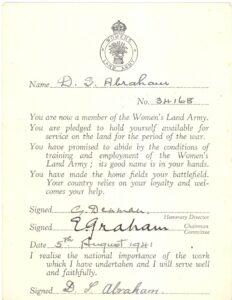 Name D. S. Abraham
No. 34168
You are now a member of the Women's Land Army.
You are pledged to hold yourself available for
service on the land for the period of the war.
You have promised to abide by the conditions of
training and employment of the Women's
Land Army; its good name is in your hands.
You have made the home fields your battlefield.
Your country relies on your loyalty and wel-
comes your help.
Signed
Honorary Director
Signed E Graham Chairman
Committee
Date 5th August 1941
I realise the national importance of the work
which I have undertaken and I will serve well
and faithfully.
Signed D. S. Abraham.